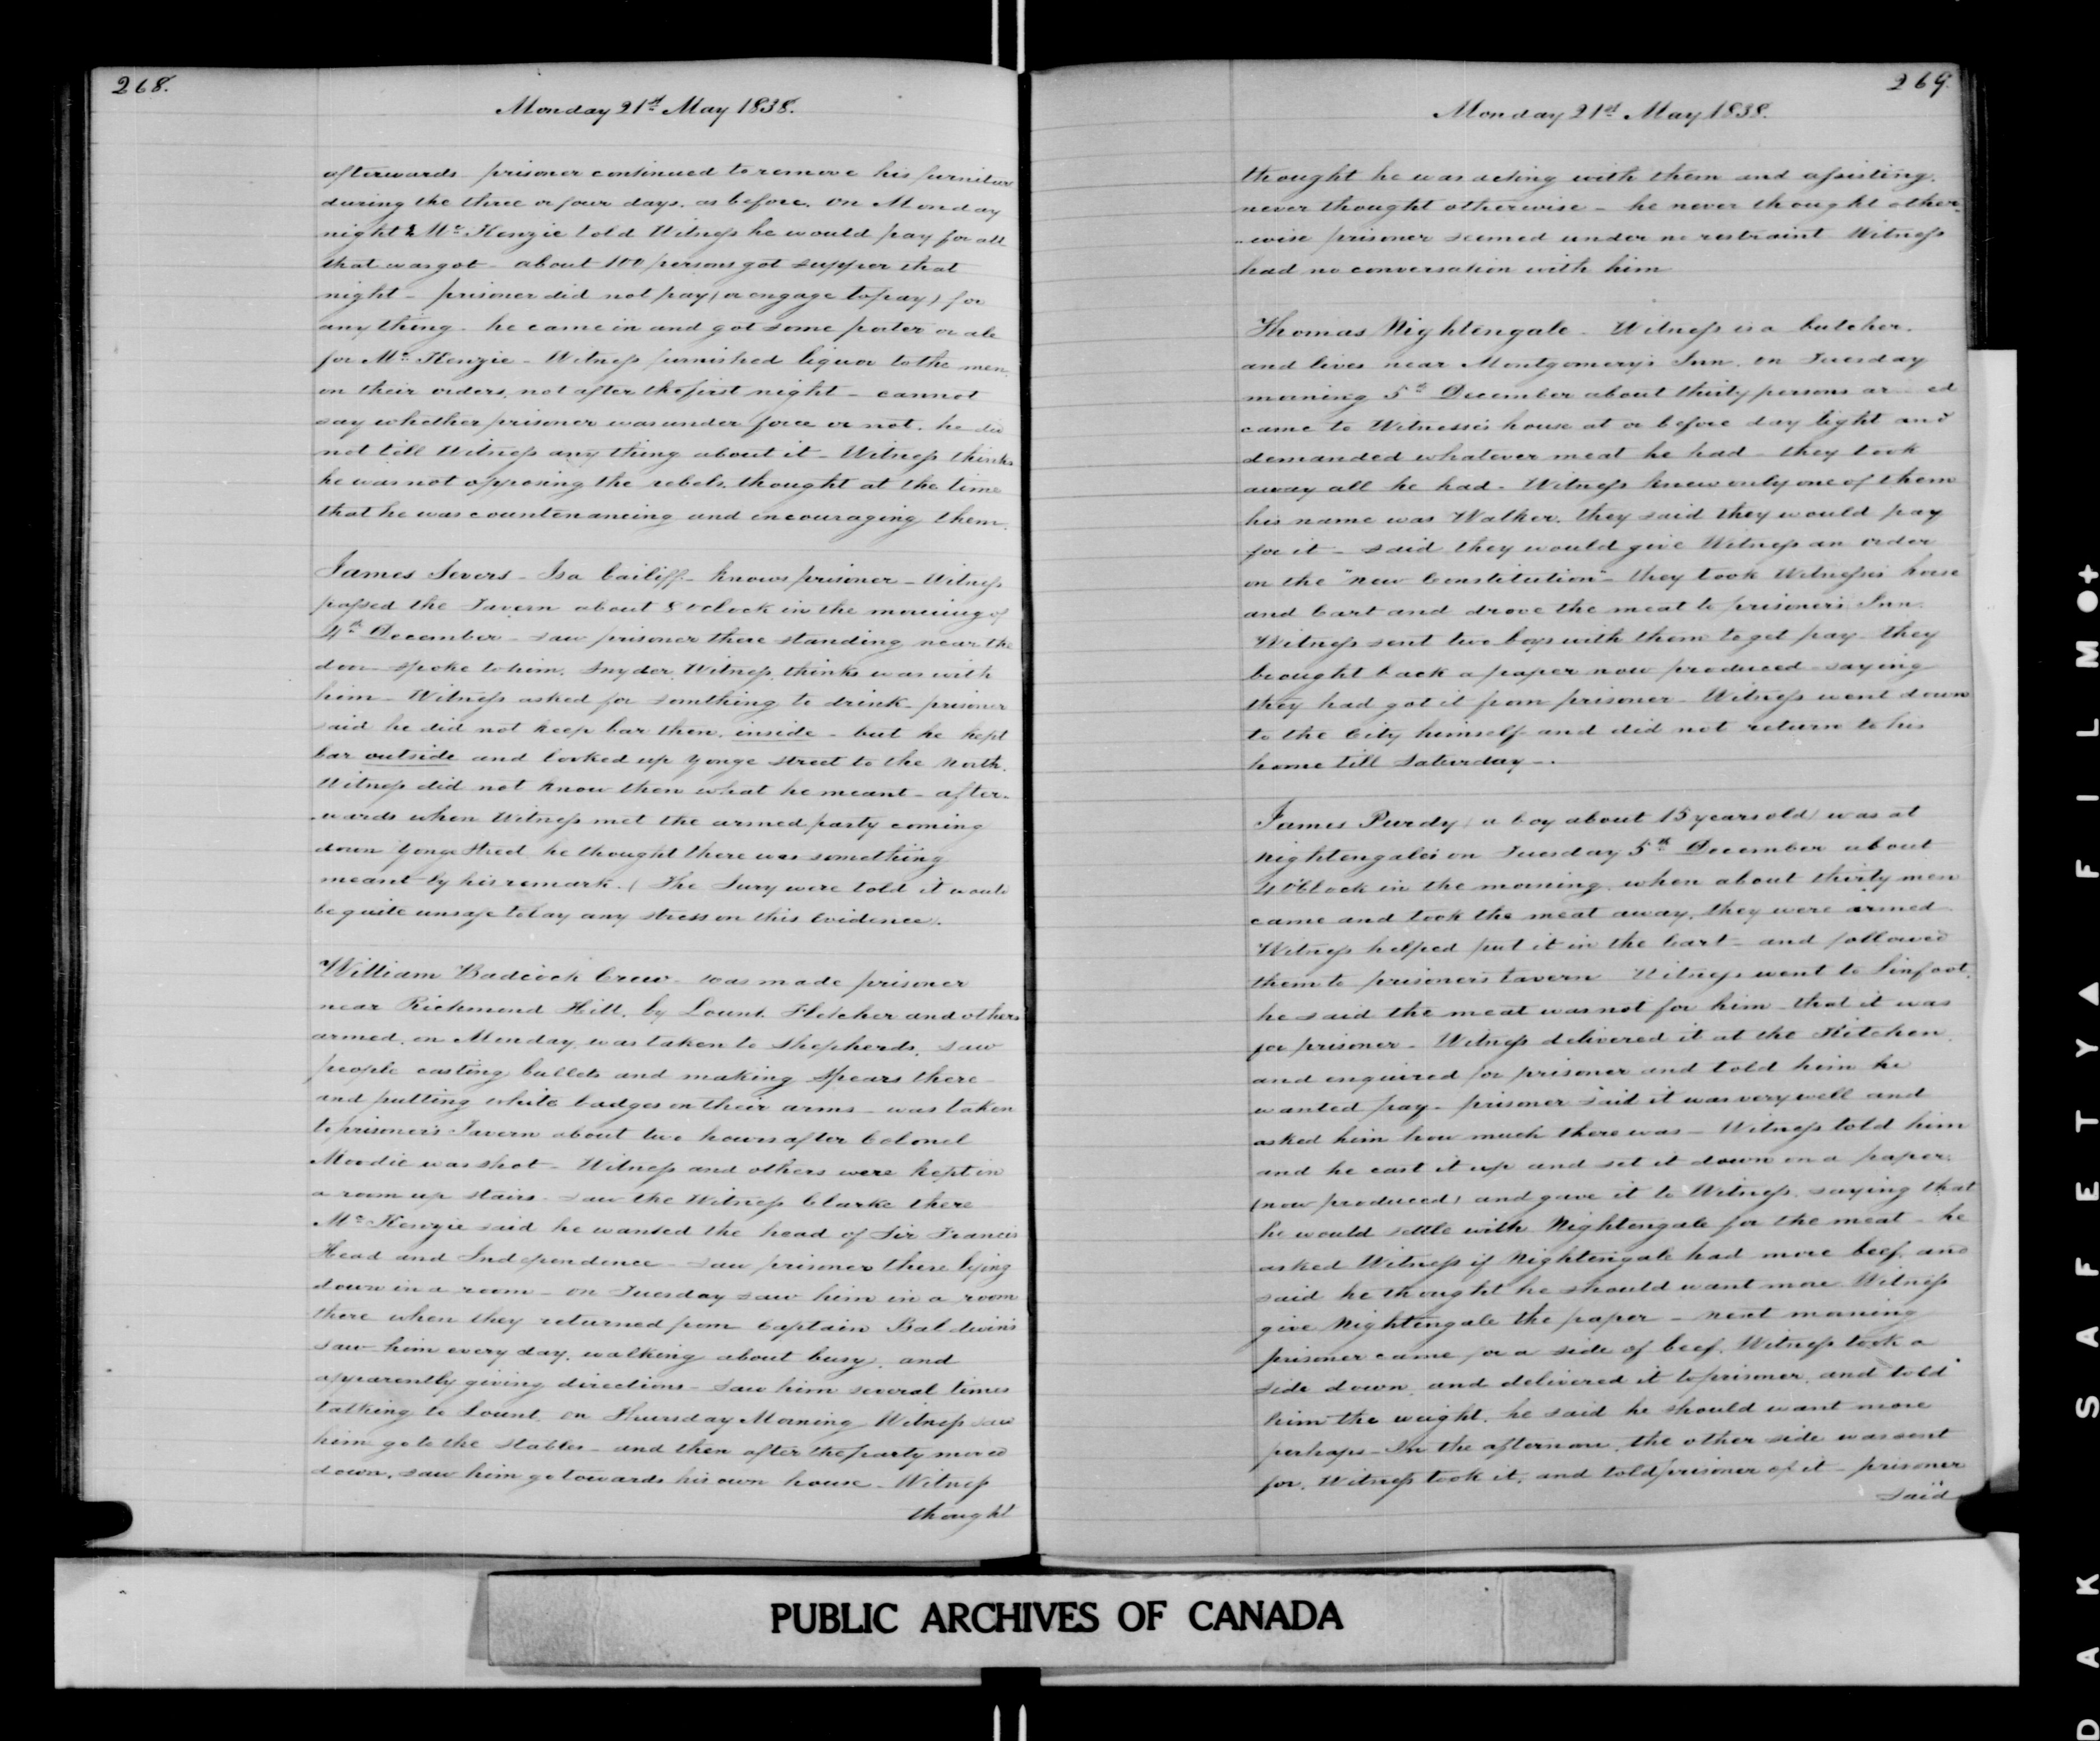 268.
Monday 21st May 1838.
afterwards prisoner continued to remove his furniture
during the three or four days. as before. on Monday
night & McKenzie told Witness he would pay for all
that was got - about 100 persons got supper that
night - prisoner did not pay (or engage to pay) for
any thing - he came in and got some porter or ale
for McKenzie - Witness furnished liquor to the men
on their orders, not after the first night - cannot
say whether prisoner was under force or not. he did
not tell Witness any thing about it - Witness thinks
he was not opposing the rebels. thought at the time
that he was countenancing and encouraging them.
James Severs - Is a bailiff - knows prisoner - Witness
passed the Tavern about 8 oClock in the morning of
4th December - saw prisoner there standing near the
door - spoke to him. Snyder, Witness thinks was with
him - Witness asked for somthing to drink - prisoner
said he did not keep bar then, inside - but he kept
bar outside and looked up Yonge Street to the North.
Witness did not know then what he meant - after-
-wards when Witness met the armed party coming
down Yonge Street he thought there was something
meant by his remark. (The Jury were told it would
be quite unsafe to lay any stress on this Evidence).
William Badcock Crew - was made prisoner
near Richmond Hill, by Lount. Fletcher and others
armed, on Monday, was taken to Shepherds, saw
people casting bullets and making Spears there -
and putting white badges on their arms - was taken
to prisoner's Tavern about two hours after Colonel
Moodie was shot - Witness and others were kept in
a room up stairs - saw the Witness Clarke there
McKenzie said he wanted the head of Sir Francis
Head and Independence - saw prisoner there lying
down in a room - on Tuesday saw him in a room
there when they returned from Captain Baldwin's
saw him every day, walking about busy, and
apparently giving directions - saw him several times
talking to Lount. on Thursday Morning Witness saw
him go to the stables - and then after the party moved
down, saw him go towards his own house - Witness
thought
269.
Monday 21st May 1838.
thought he was acting with them and assisting.
never thought otherwise - he never thought other-
-wise prisoner seemed under no restraint Witness
had no conversation with him
Thomas Nightengale - Witness is a butcher.
and lives near Montgomery's Inn. on Tuesday
morning 5th December about thirty persons ar ed
came to Witnesses house at or before day light and
demanded whatever meat he had - they took
away all he had - Witness knew only one of them
his name was Walker. they said they would pay
for it - said they would give Witness an order
on the "New Constitution" - they took Witness's horse
and Cart and drove the meat to prisoner's Inn.
Witness sent two boys with them to get pay - they
brought back a paper now produced - saying
they had got it from prisoner - Witness went down
to the City himself and did not return to his
home till Saturday -.
James Purdy (a boy about 15 years old) was at
Nightengale's on Tuesday 5th December about
4 oClock in the morning, when about thirty men
came and took the meat away, they were armed
Witness helped put it in the Cart - and followed
them to prisoner's tavern Witness went to Linfoot.
he said the meat was not for him - that it was
for prisoner - Witness delivered it at the Kitchen
and enquired for prisoner and told him he
wanted pay - prisoner said it was very well and
asked him how much there was - Witness told him
and he cast it up and set it down on a paper.
(now produced) and gave it to Witness. saying that
he would settle with Nightengale for the meat - he
asked Witness if Nightengale had more beef, and
said he thought he should want more Witness
give Nightengale the paper - next morning
prisoner came for a side of beef. Witness took a
side down, and delivered it to prisoner, and told
him the weight. he said he should want more
perhaps - In the afternoon, the other side was sent
for. Witness took it, and told prisoner of it - prisoner
said
PUBLIC ARCHIVES OF CANADA
D A K S A F E T Y ▲ F I L M ● +